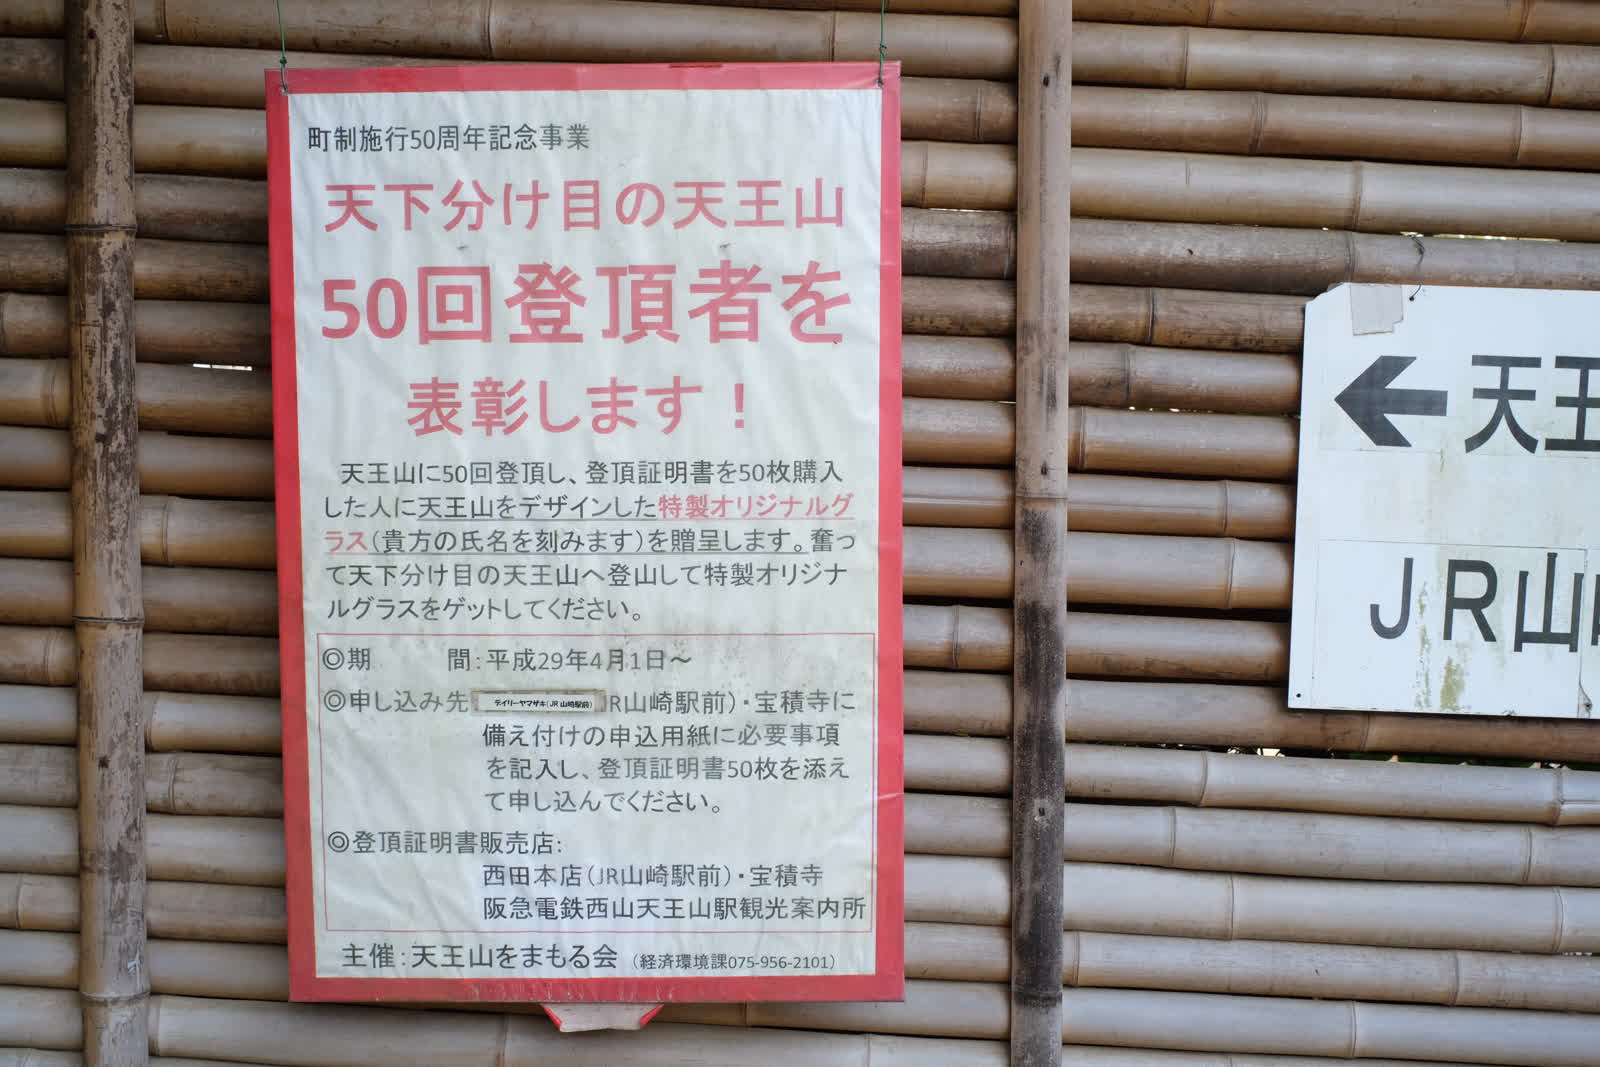 町制施行50周年記念事業
天下分け目の天王山
50回登頂者を
表彰します！
天王山に50回登頂し、登頂証明書を50枚購入
した人に天王山をデザインした特製オリジナルグ
ラス（貴方の氏名を刻みます）を贈呈します。奮っ
て天下分け目の天王山へ登山して特製オリジナ
ルグラスをゲットしてください。
◎期　　　間：平成29年4月1日～
◎申し込み先 デイリーヤマザキ(JR 山崎駅前) R山崎駅前）・宝積寺に
備え付けの申込用紙に必要事項
を記入し、登頂証明書50枚を添え
て申し込んでください。
◎登頂証明書販売店：
西田本店（JR山崎駅前）・宝積寺
阪急電鉄西山天王山駅観光案内所
主催：天王山をまもる会（経済環境課075-956-2101）
← 天王
ＪＲ山